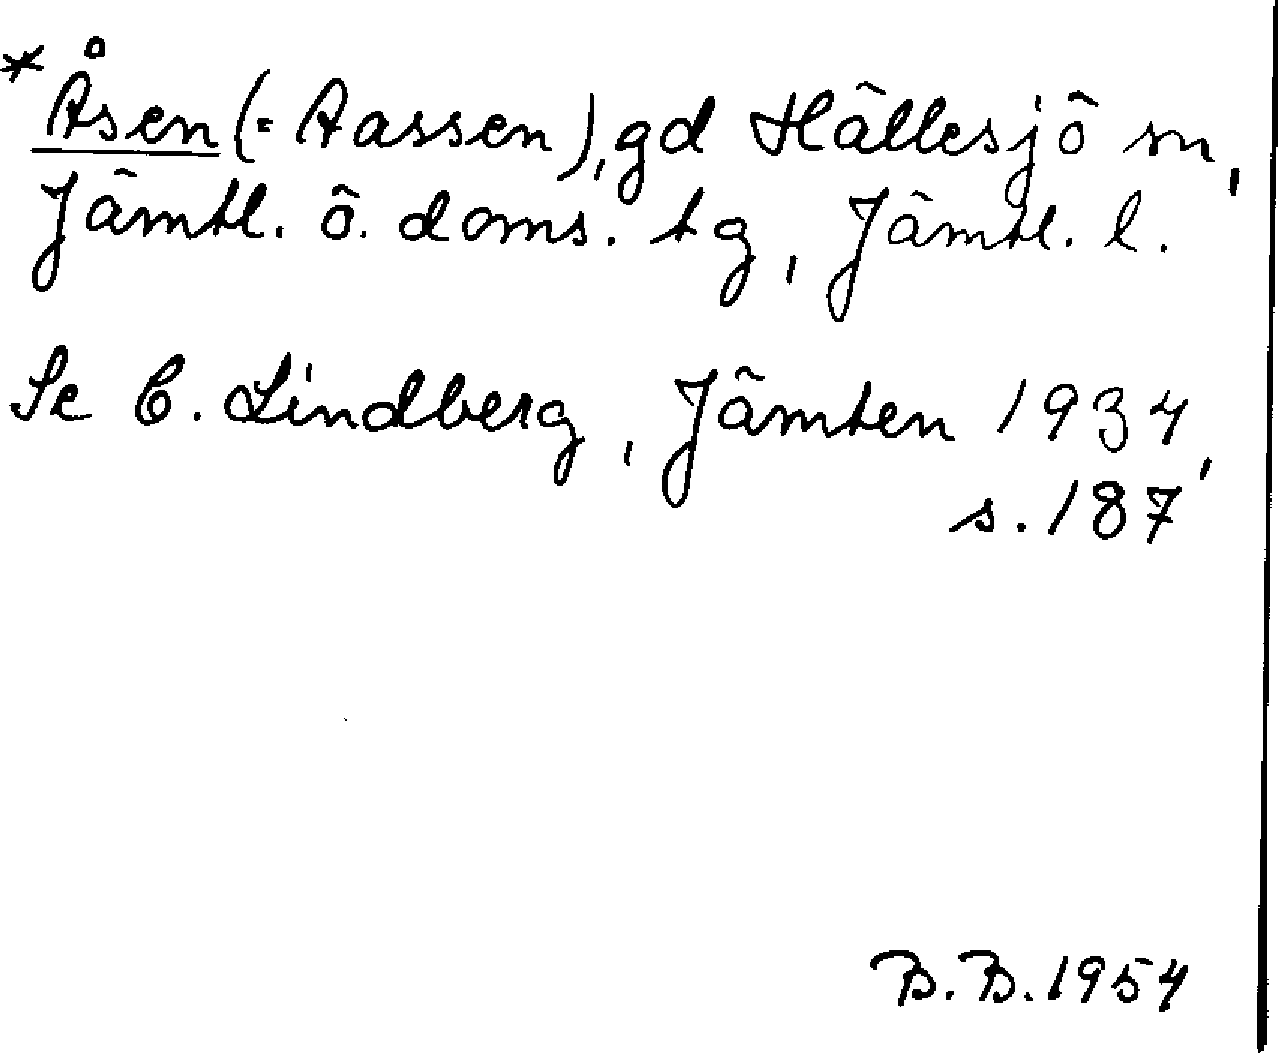 *Åsen (= Aassen), gd Hällesjö sn,
Jämtl. ö. doms. tg, Jämtl. l.
Se C. Lindberg, Jämten 1934,
s. 187
B.B. 1954